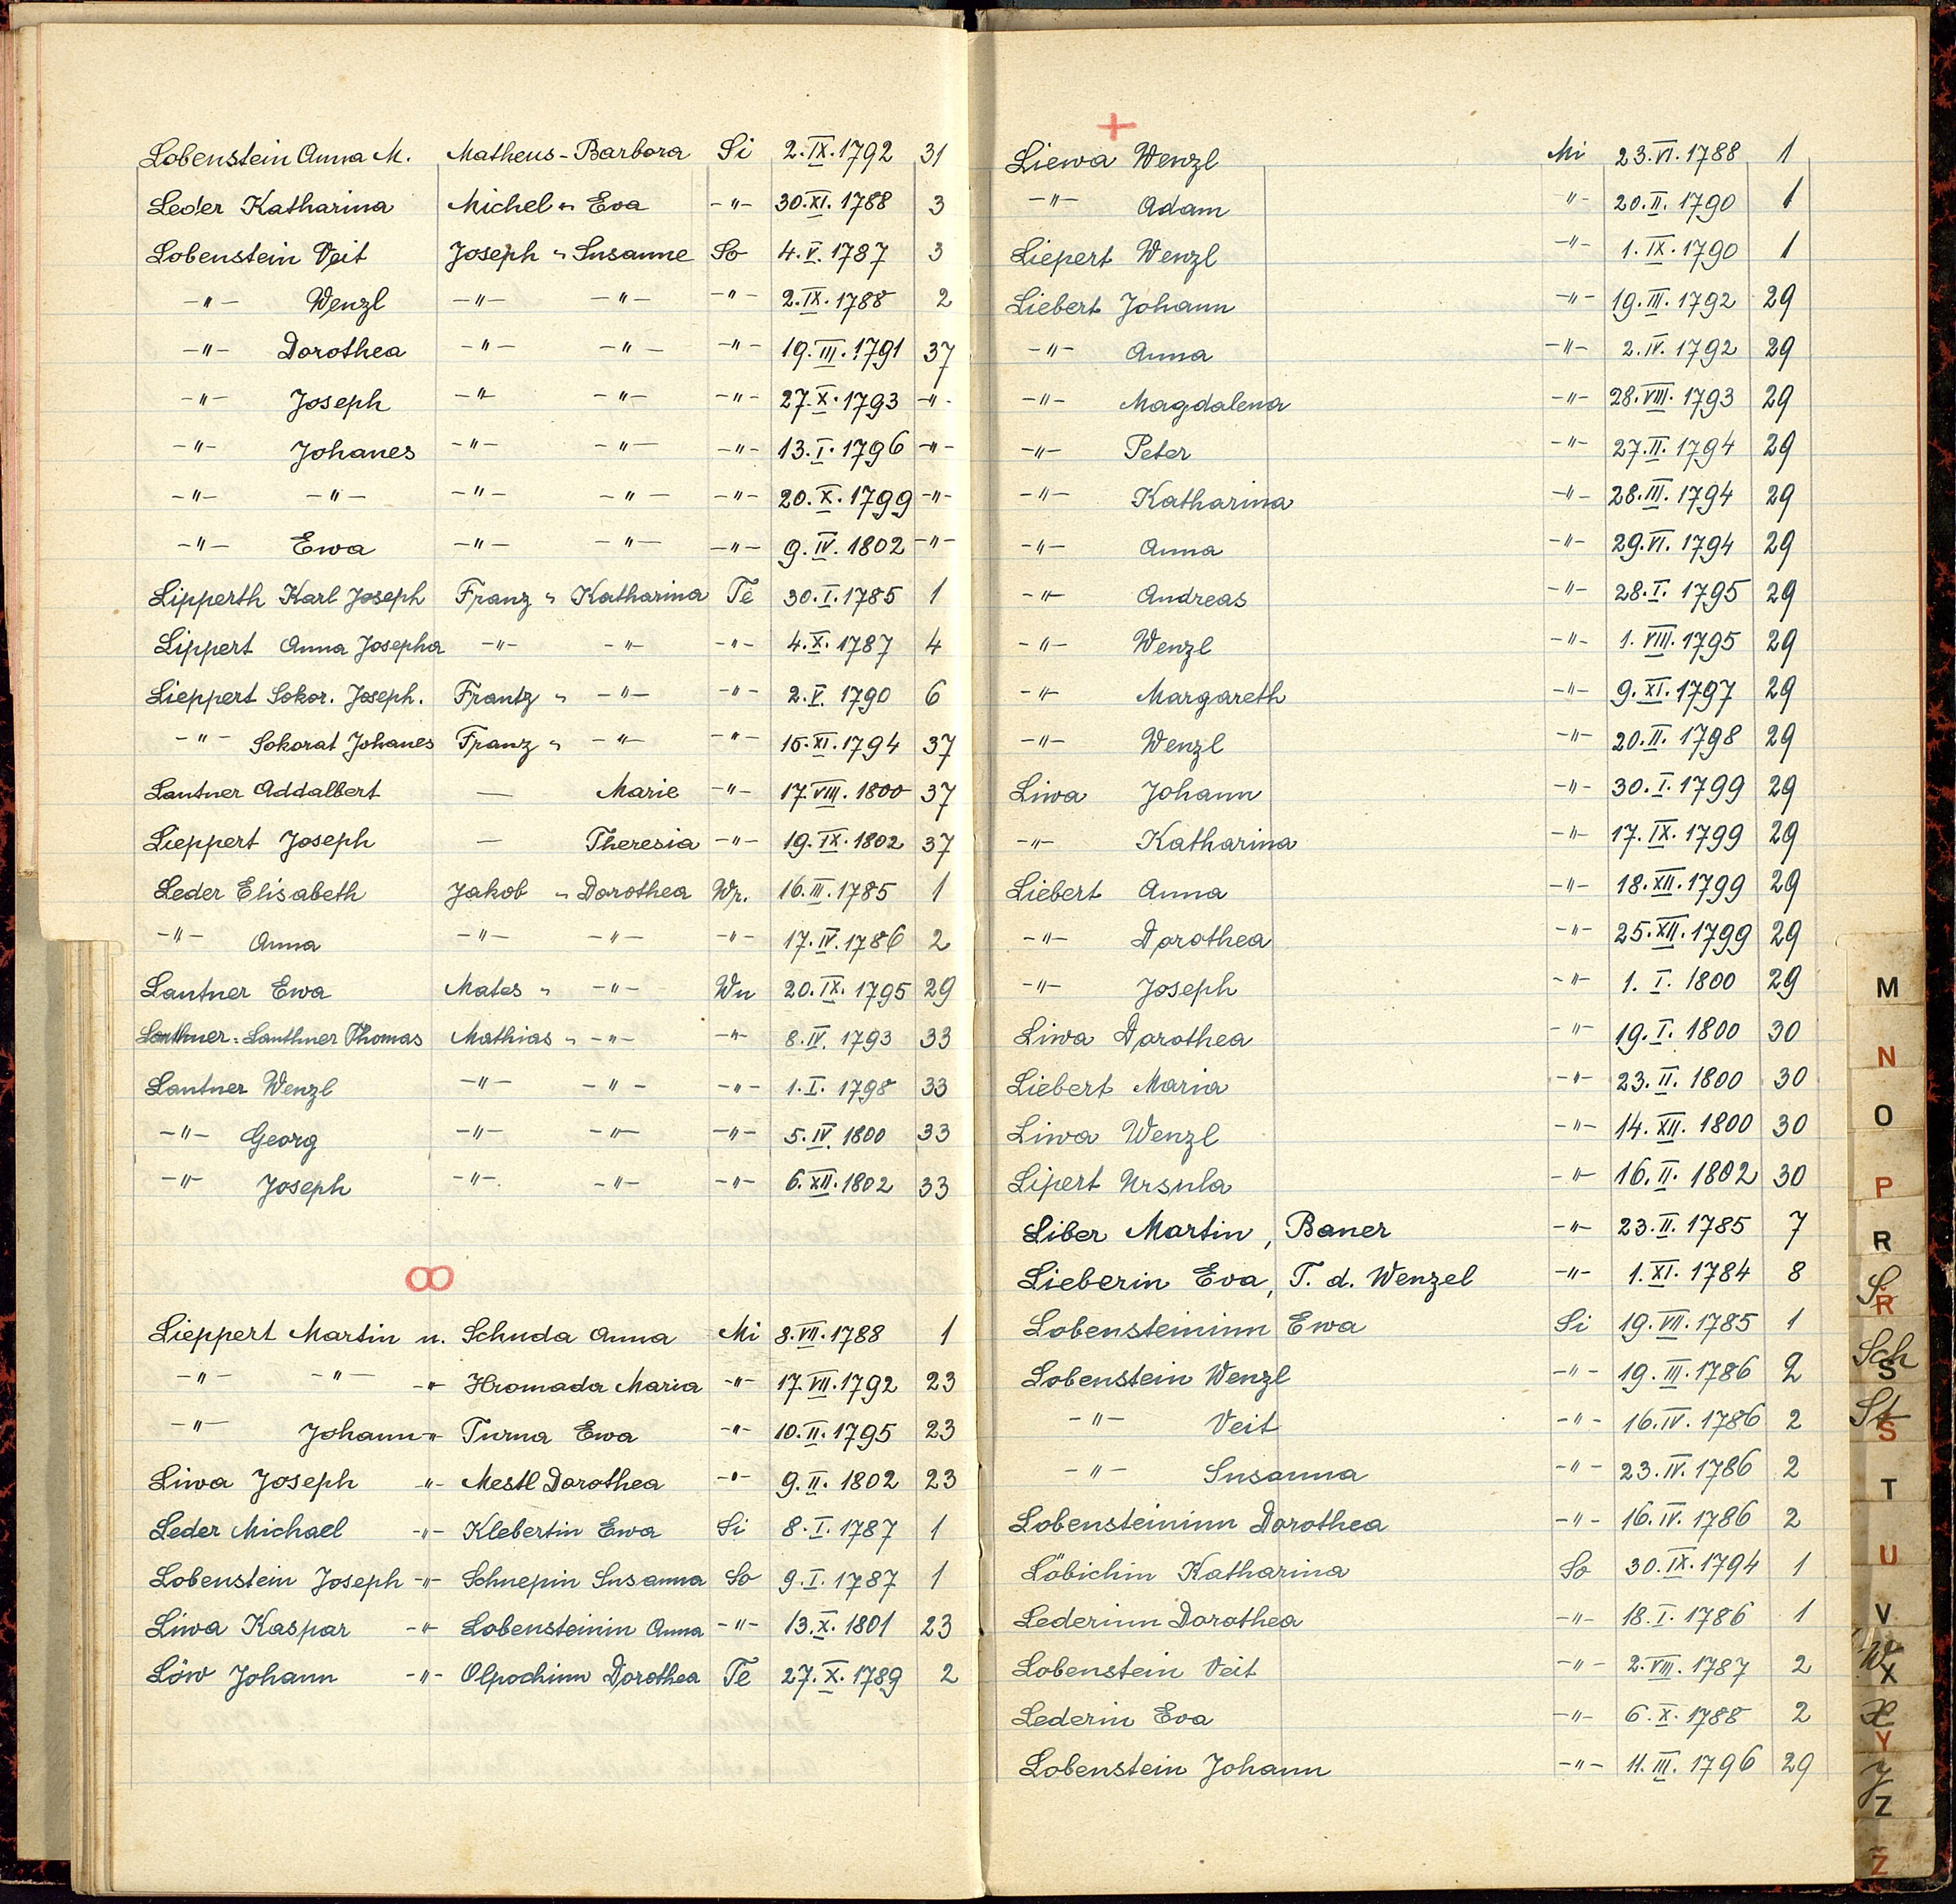 Lobenstein Anna M. Matheus - Barbora Si 2.IX.1792 31
Leder Katharina Michel " Eva -"- 30.XI.1788 3
Lobenstein Veit Joseph " Susanne So 4.V.1787 3
-"- Wenzl -"- -"- -"- 2.IX.1788 2
-"- Dorothea -"- -"- -"- 19.III.1791 37
-"- Joseph -"- -"- -"- 27.X.1793 -"-
-"- Johanes -"- -"- -"- 13.I.1796 -"-
-"- -"- -"- -"- -"- 20.X.1799 -"-
-"- Ewa -"- -"- -"- 9.IV.1802 -"-
Lipperth Karl Joseph Franz " Katharina Te 30.I.1785 1
Lippert Anna Josepha -"- -"- -"- 4.X.1787 4
Lieppert Sokor. Joseph. Frantz " -"- -"- 2.V.1790 6
-"- Sokorat Johanes Franz " -"- -"- 15.XI.1794 37
Lantner Addalbert — Marie -"- 17.VIII.1800 37
Lieppert Joseph — Theresia -"- 19.IX.1802 37
Leder Elisabeth Jakob " Dorothea Wp. 16.III.1785 1
-"- Anna -"- -"- -"- 17.IV.1786 2
Lantner Ewa Mates " -"- Wn 20.IX.1795 29
Lanthner Thomas Mathias " -"- -"- 8.IV.1793 33
Lantner Wenzl -"- -"- -"- 1.I.1798 33
-"- Georg -"- -"- -"- 5.IV.1800 33
-"- Joseph -"- -"- -"- 6.XII.1802 33
∞
Lieppert Martin u. Schuda Anna Mi 8.VII.1788 1
-"- -"- -"- Hromada Maria -"- 17.VII.1792 23
-"- Johann -"- Turna Ewa -"- 10.II.1795 23
Liwa Joseph -"- Mestl Dorothea -"- 9.II.1802 23
Leder Michael -"- Klebertin Ewa Si 8.I.1787 1
Lobenstein Joseph -"- Schnepin Susanna So 9.I.1787 1
Liwa Kaspar -"- Lobensteinin Anna -"- 13.X.1801 23
Löw Johann -"- Olpochinn Dorothea Te 27.X.1789 2
+
Liewa Wenzl Mi 23.VI.1788 1
-"- Adam "- 20.II.1790 1
Liepert Wenzl -"- 1.IX.1790 1
Liebert Johann -"- 19.III.1792 29
-"- Anna -"- 2.IV.1792 29
-"- Magdalena -"- 28.VIII.1793 29
-"- Peter -"- 27.II.1794 29
-"- Katharina -"- 28.III.1794 29
-"- Anna -"- 29.VI.1794 29
-"- Andreas -"- 28.I.1795 29
-"- Wenzl -"- 1.VIII.1795 29
-"- Margareth -"- 9.XI.1797 29
-"- Wenzl -"- 20.II.1798 29
Liwa Johann -"- 30.I.1799 29
-"- Katharina -"- 17.IX.1799 29
Liebert Anna -"- 18.XII.1799 29
-"- Dorothea -"- 25.XII.1799 29
-"- Joseph -"- 1.I.1800 29
Liwa Dorothea -"- 19.I.1800 30
Liebert Maria -"- 23.II.1800 30
Liwa Wenzl -"- 14.XII.1800 30
Lipert Ursula -"- 16.II.1802 30
Liber Martin, Baner -"- 23.II.1785 7
Lieberin Eva, T. d. Wenzel -"- 1.XI.1784 8
Lobensteininn Ewa Si 19.VII.1785 1
Lobenstein Wenzl -"- 19.III.1786 2
-"- Veit -"- 16.IV.1786 2
-"- Susanna -"- 23.IV.1786 2
Lobensteininn Dorothea -"- 16.IV.1786 2
Löbichin Katharina So 30.IX.1794 1
Lederinn Dorothea -"- 18.I.1786 1
Lobenstein Veit -"- 2.VIII.1787 2
Lederin Eva -"- 6.X.1788 2
Lobenstein Johann -"- 11.III.1796 29
M
N
O
P
R
Ř
S
Sch
S
St
Š
T
U
V
W
X
Y
Z
Ž